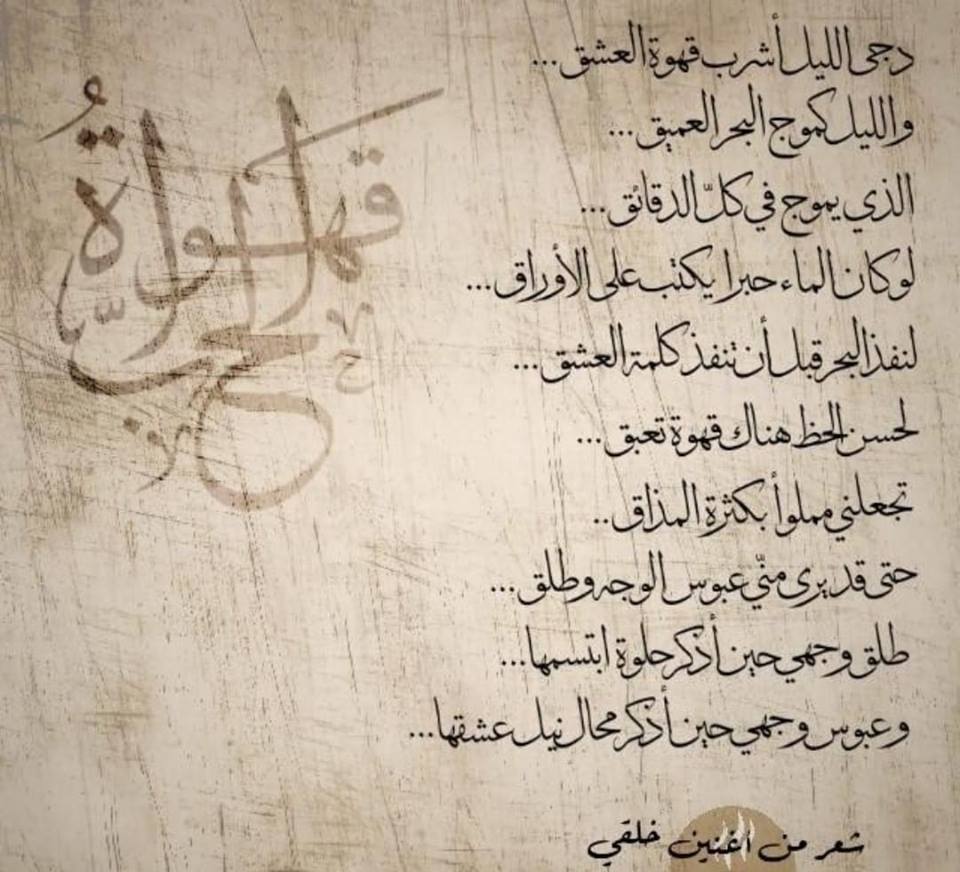 قهوة الحب
دجى الليل أشرب قهوة العشق...
والليل كموج البحر العميق...
الذي يموج في كلّ الدقائق...
لوكان الماء حبرا يكتب على الأوراق...
لنفذ البحر قبل أن تنفذ كلمة العشق...
لحسن الحظ هناك قهوة تعبق...
تجعلني مملوأ بكثرة المذاق..
حتى قد يرى منّي عبوس الوجه وطلق...
طلق وجهي حين أذكر حلوة ابتسمها...
وعبوس وجهي حين أذكر محال نيل عشقها...
شعر من اغنين خلقي